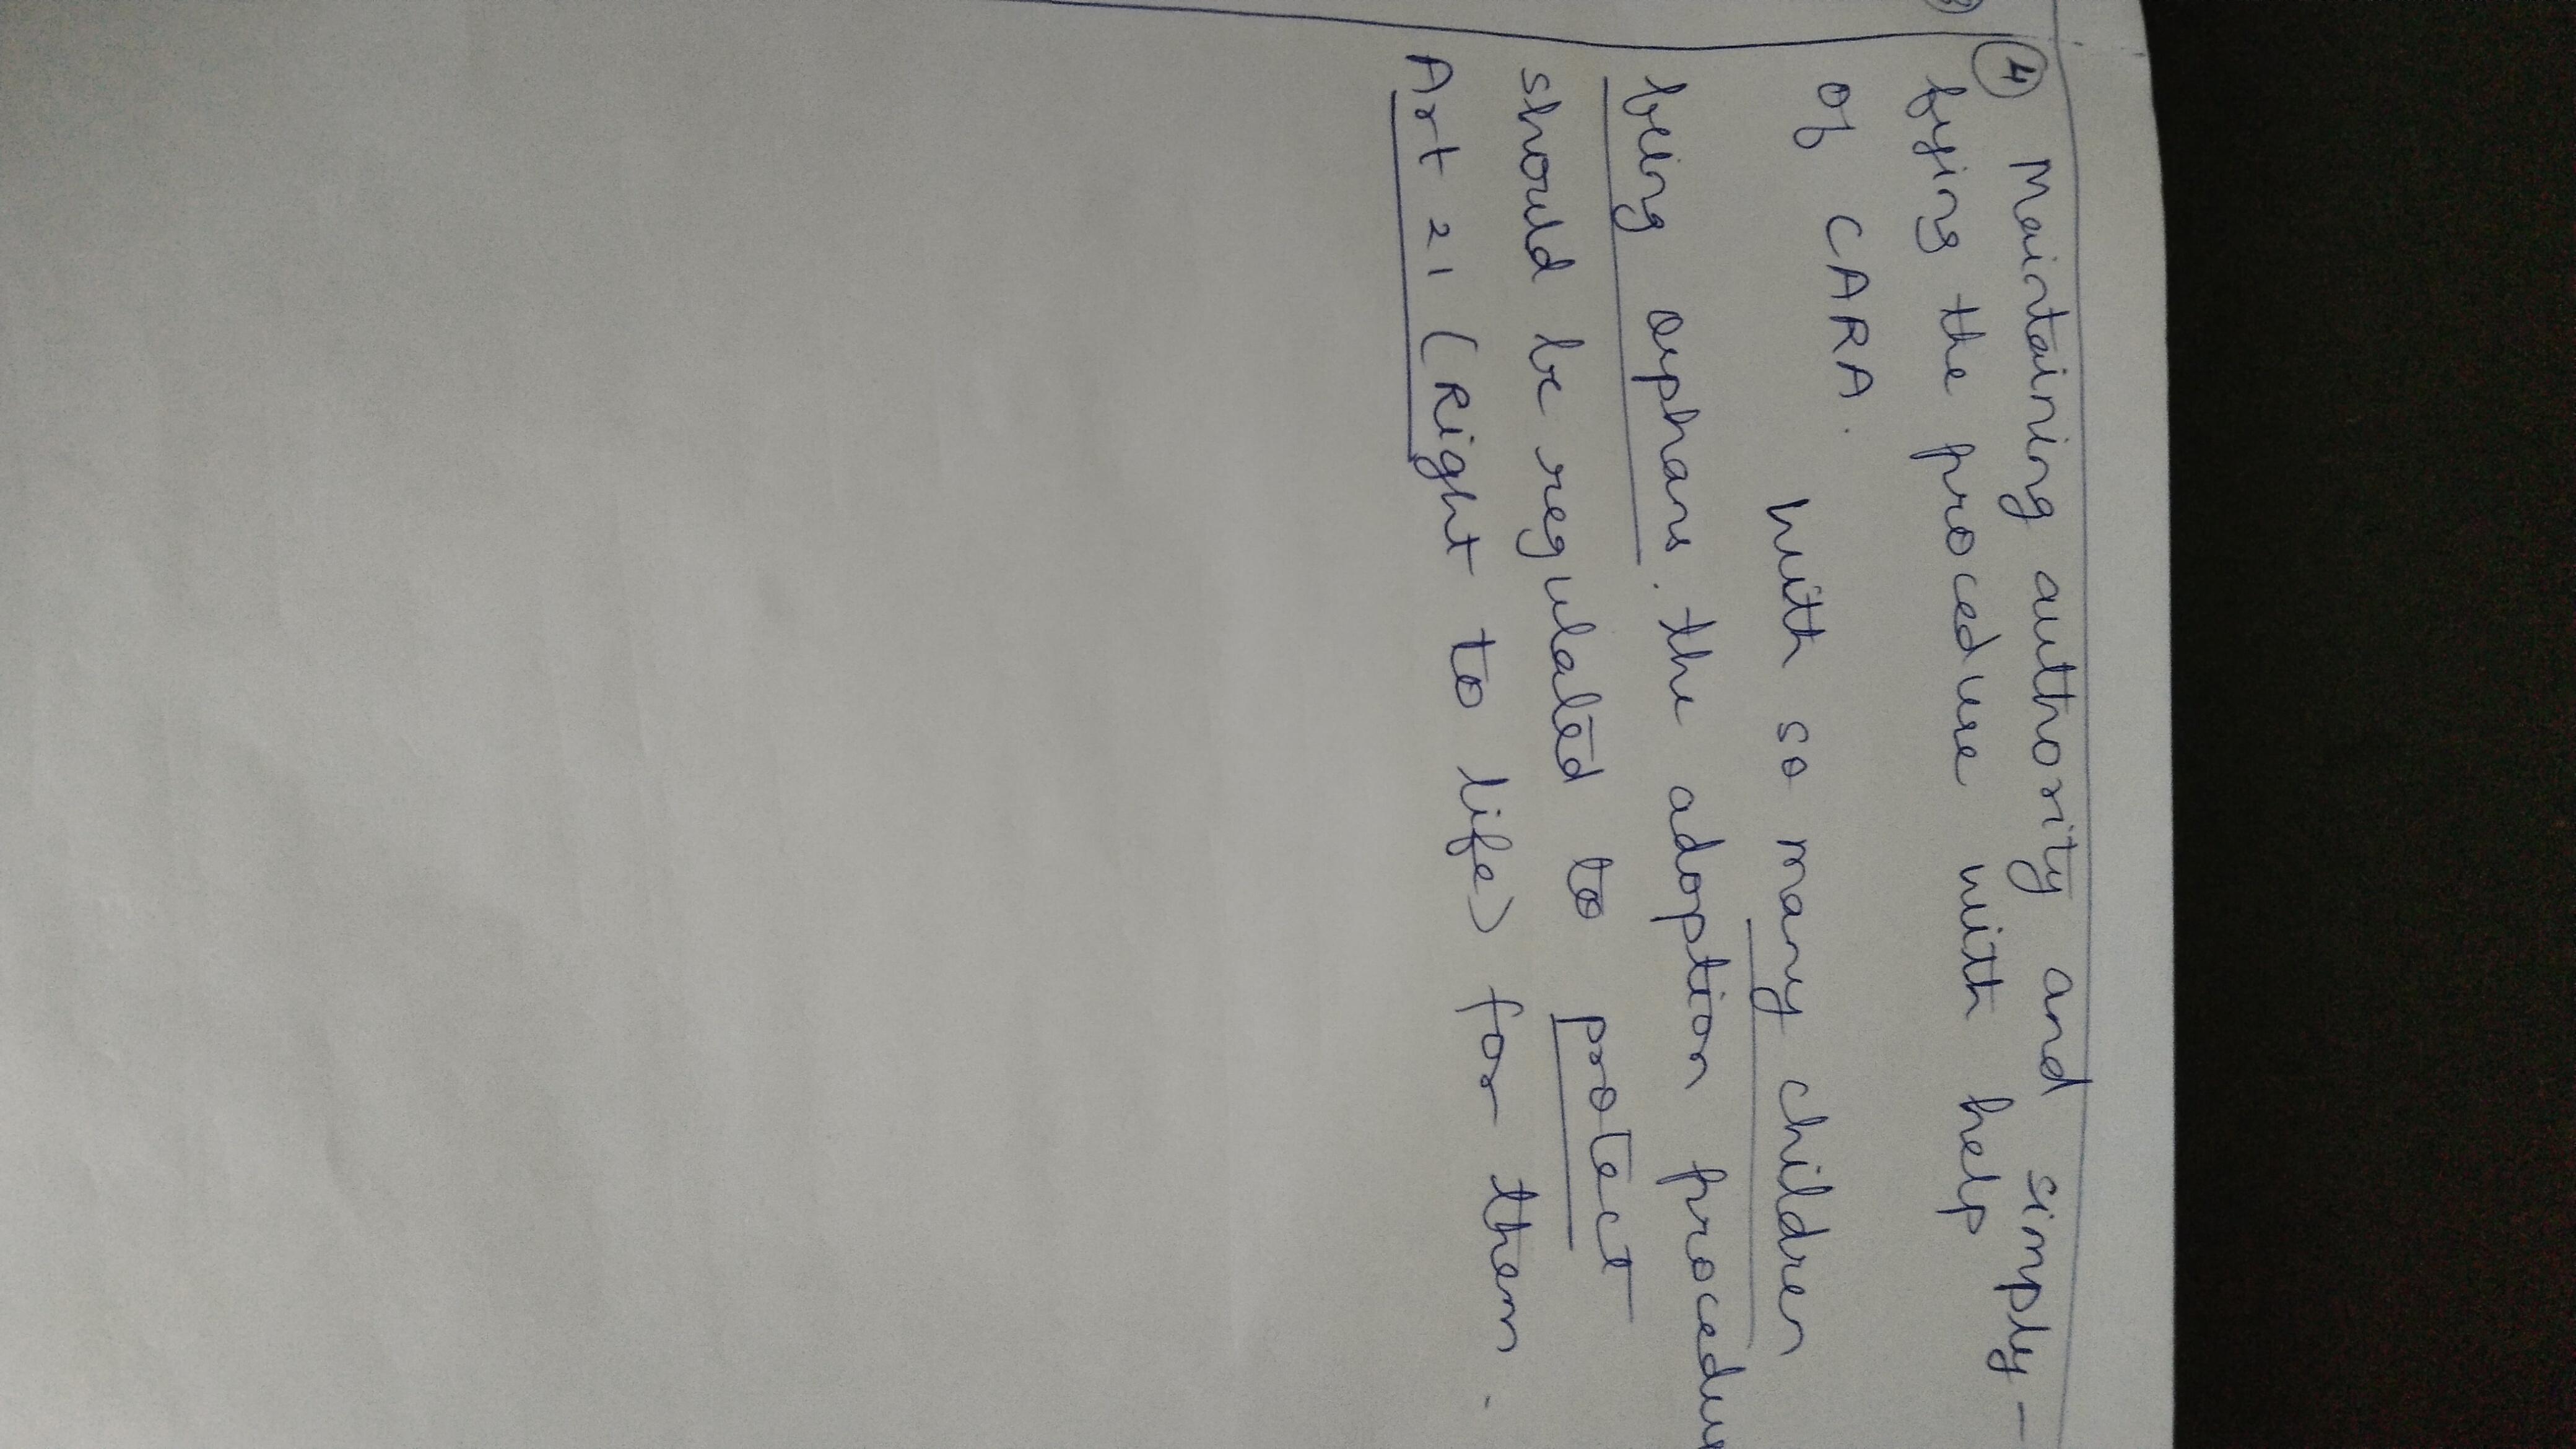 ④ Maintaining authority and simply-
fying the procedure with help
of CARA.
With so many children
being orphans. the adoption procedu
should be regulated to protect
Art 21 (Right to life) for them.